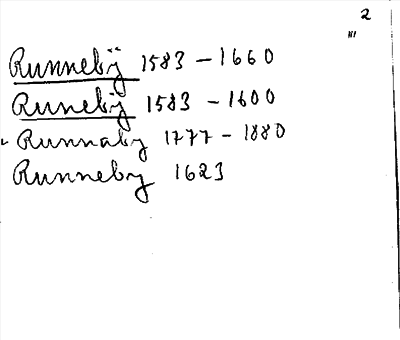 2
"'
Runnebÿ 1583 - 1660
Runebÿ 1583 - 1600
Runnaby 1777 - 1880
Runneby 1623